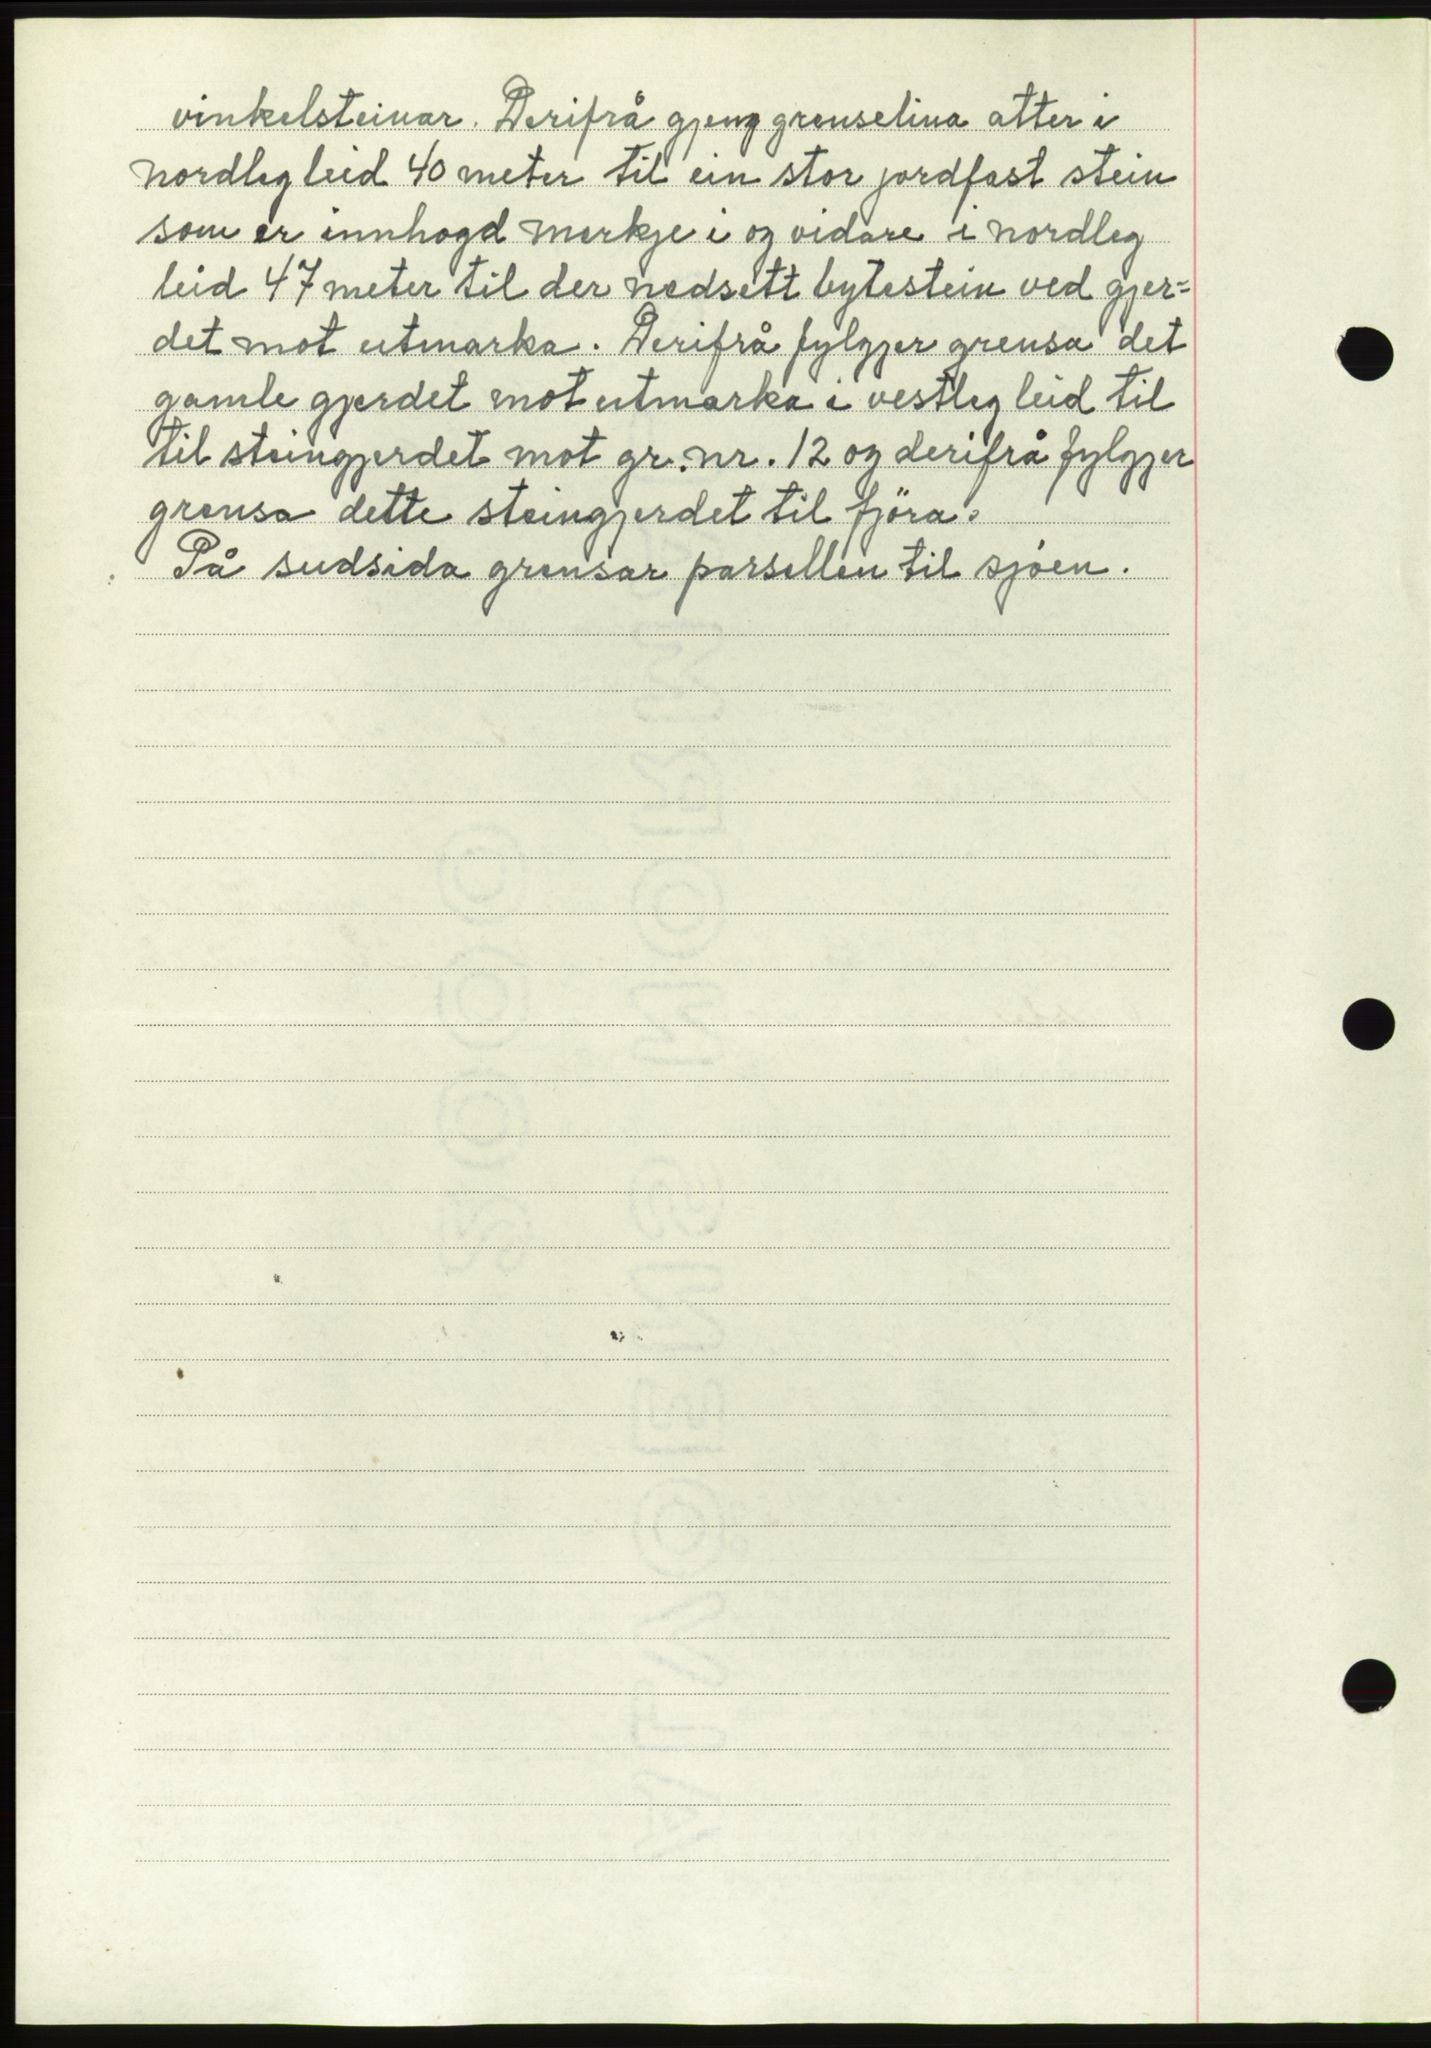 vinkelsteinar. Derifrå gjeng grenselina atter i
nordleg leid 40 meter til ein stor jordfast stein
som er innhogd merkje i og vidare i nordleg
leid 47 meter til der nedsett bytestein ved gjer=
det mot utmarka. Derifrå fylgjer grensa det
gamle gjerdet mot utmarka i vestleg leid til
til steingjerdet mot gr.nr. 12 og derifrå fylgjer
grensa dette steingjerdet til fjöra.
På sudsida grensar parsellen til sjøen.